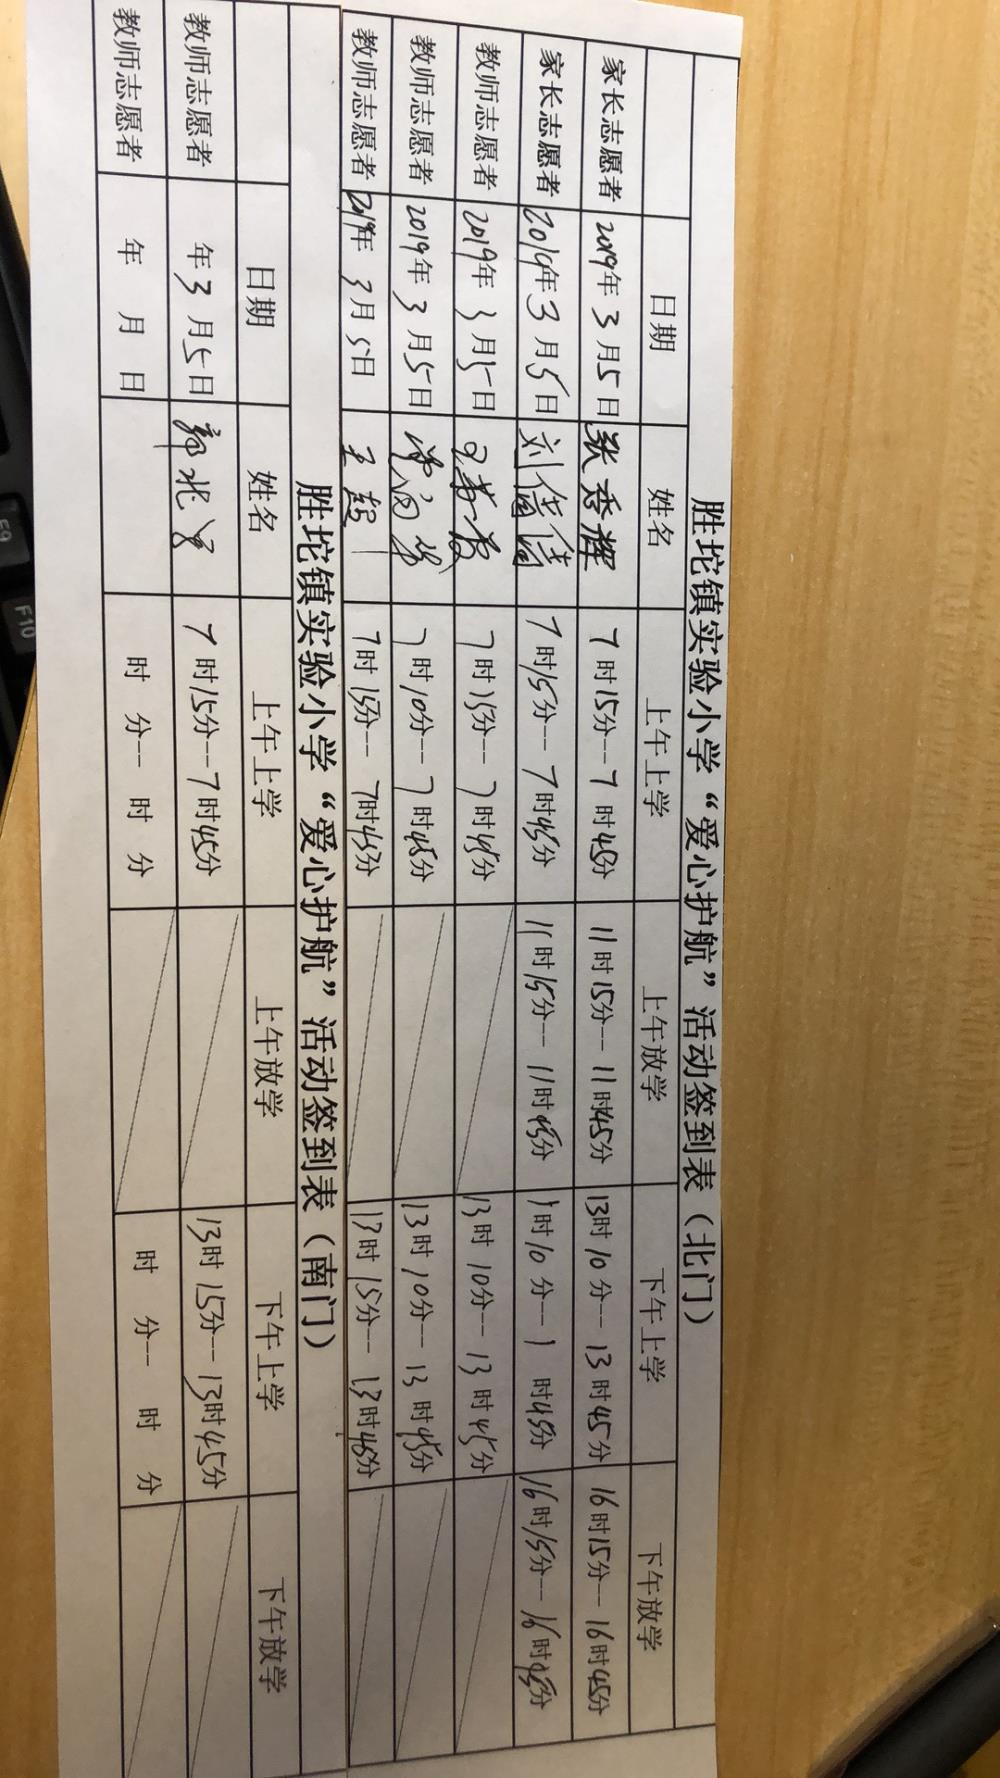 胜坨镇实验小学“爱心护航”活动签到表（北门）
日期 姓名 上午上学 上午放学 下午上学 下午放学
家长志愿者 2019年3月5日 张秀辉 7时15分--7时45分 11时15分--11时45分 13时10分--13时45分 16时15分--16时45分
家长志愿者 2019年3月5日 刘倩倩 7时15分--7时45分 11时15分--11时45分 1时10分--1时45分 16时15分--16时45分
教师志愿者 2019年3月5日 7时15分--7时45分 13时10分--13时45分
教师志愿者 2019年3月5日 7时10分--7时45分 13时10分--13时45分
教师志愿者 2019年3月5日 王超 7时15分--7时45分 13时15分--13时45分
胜坨镇实验小学“爱心护航”活动签到表（南门）
日期 姓名 上午上学 上午放学 下午上学 下午放学
教师志愿者 年3月5日 7时15分--7时45分 13时15分--13时45分
教师志愿者 年 月 日 时 分--时 分 时 分--时 分
F9
F10